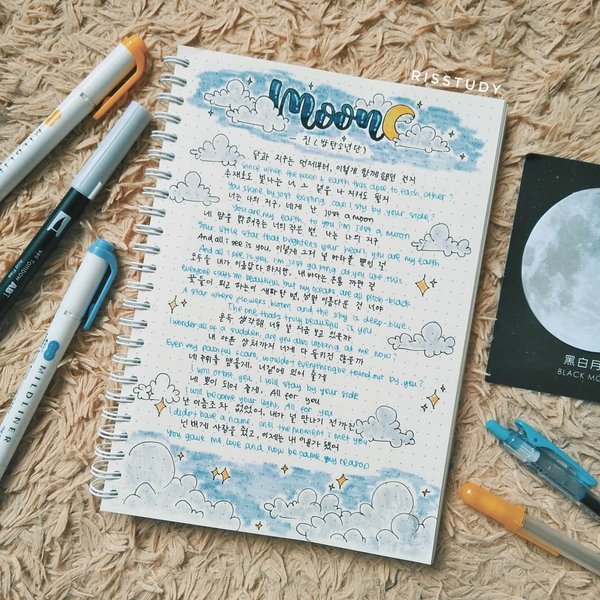 RISSTUDY
Moon
진 (방탄소년단)
달과 지구는 언제부터, 이렇게 함께 했던 건지
Since when the moon & earth this close to each other?
존재로도 빛나는 너, 그 곁을 나 지켜도 될지
You shine by just existing, can I stay by your side?
너는 나의 지구, 네게 난 just a moon
You are my earth, to you I'm just a moon
네 맘을 밝혀주는 너의 작은 별, 너는 나의 지구
Your little star that brightens your heart, you are my earth
And all I see is you, 이렇게 그저 널 바라볼 뿐인 걸
And all I see is you, I'm just gazing at you like this
모두들 내가 아름답다 하지만, 내 바다는 온통 까만 걸
Everyone calls me beautiful, but my oceans are all pitch-black
꽃들이 피고 하늘이 새파란 별, 정말 아름다운 건 너야
A star where flowers bloom, and the sky is deep-blue.
The one thats truly beautiful is you
문득 생각해 너두 날 지금 보고 있을까
I wonder all of a sudden, are you also looking at me now?
내 아픈 상처까지 네게 다 들키진 않을까
Even my painful scars, wouldn't everything be found out by you?
네 주위를 맴돌게, 네 곁에 있어 줄게
I will orbit you, I will stay by your side
네 빛이 되어 줄게, All for you
I will become your light, All for you
난 이름조차 없었어, 내가 널 만나기 전까진
I didn't have a name until the moment I met you
넌 내게 사랑을 줬고, 이제는 내 이유가 됐어
You gave me love and now became my reason
Tombow ABT
MILDLINER
黑白月
BLACK MO